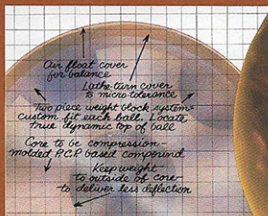 Air float cover
for balance
Lathe-turn cover
to micro-tolerance
Two piece weight block system-
custom fit each ball. Locate
true dynamic top of ball
Core to be compression-
molded P.C.P. based compound
Keep weight
to outside of core-
to deliver less deflection